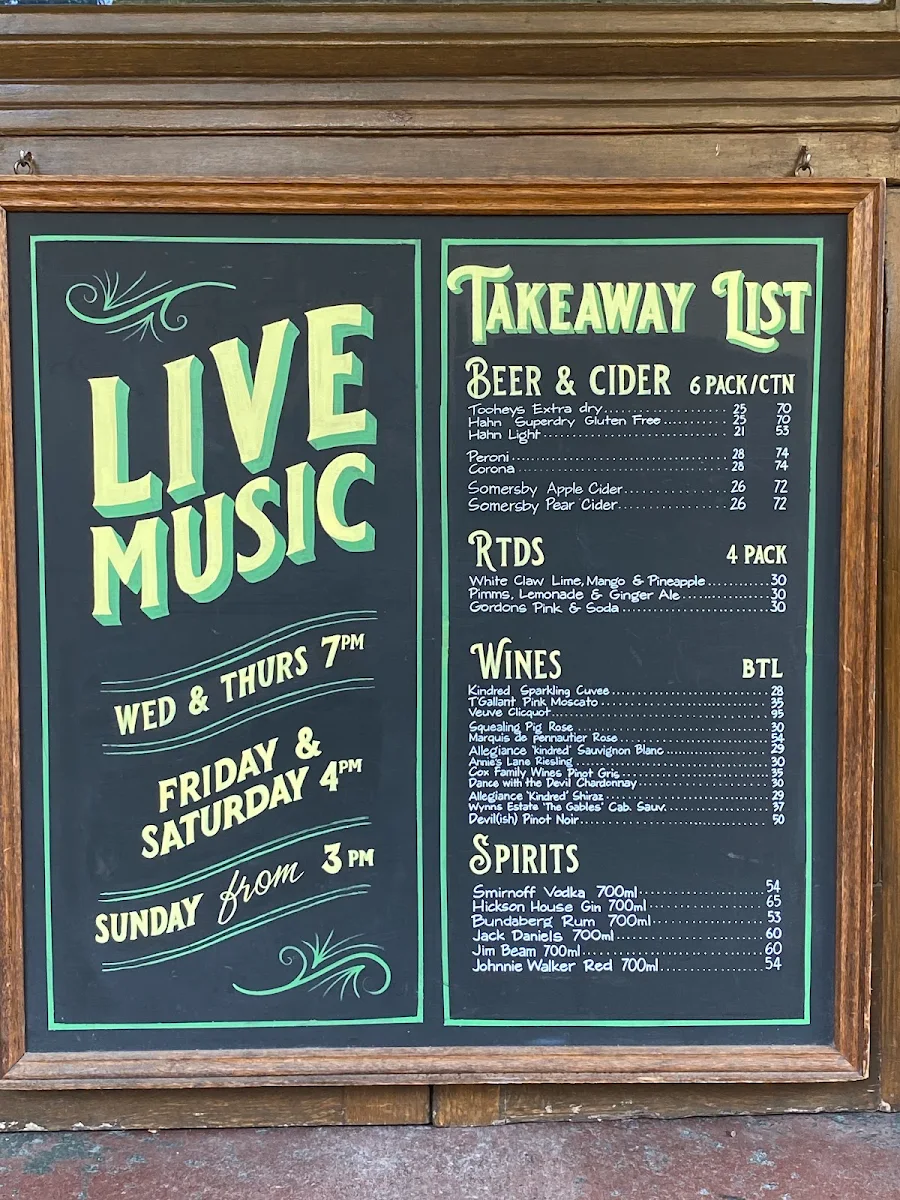 LIVE
MUSIC
WED & THURS 7PM
FRIDAY &
SATURDAY 4PM
SUNDAY from 3 PM
TAKEAWAY LIST
BEER & CIDER 6 PACK/CTN
Tooheys Extra dry 25 70
Hahn Superdry Gluten Free 25 70
Hahn Light 21 53
Peroni 28 74
Corona 28 74
Somersby Apple Cider 26 72
Somersby Pear Cider 26 72
RTDS 4 PACK
White Claw Lime, Mango & Pineapple 30
Pimms, Lemonade & Ginger Ale 30
Gordons Pink & Soda 30
WINES BTL
Kindred Sparkling Cuvee 28
T'Gallant Pink Moscato 35
Veuve Clicquot 95
Squealing Pig Rose 30
Marquis de Pennautier Rose 54
Allegiance 'Kindred' Sauvignon Blanc 29
Annie's Lane Riesling 30
Cox Family Wines Pinot Gris 35
Dance with the Devil Chardonnay 30
Allegiance 'Kindred' Shiraz 29
Wynns Estate 'The Gables' Cab. Sauv. 37
Devil(ish) Pinot Noir 50
SPIRITS
Smirnoff Vodka 700ml 54
Hickson House Gin 700ml 65
Bundaberg Rum 700ml 53
Jack Daniels 700ml 60
Jim Beam 700ml 60
Johnnie Walker Red 700ml 54